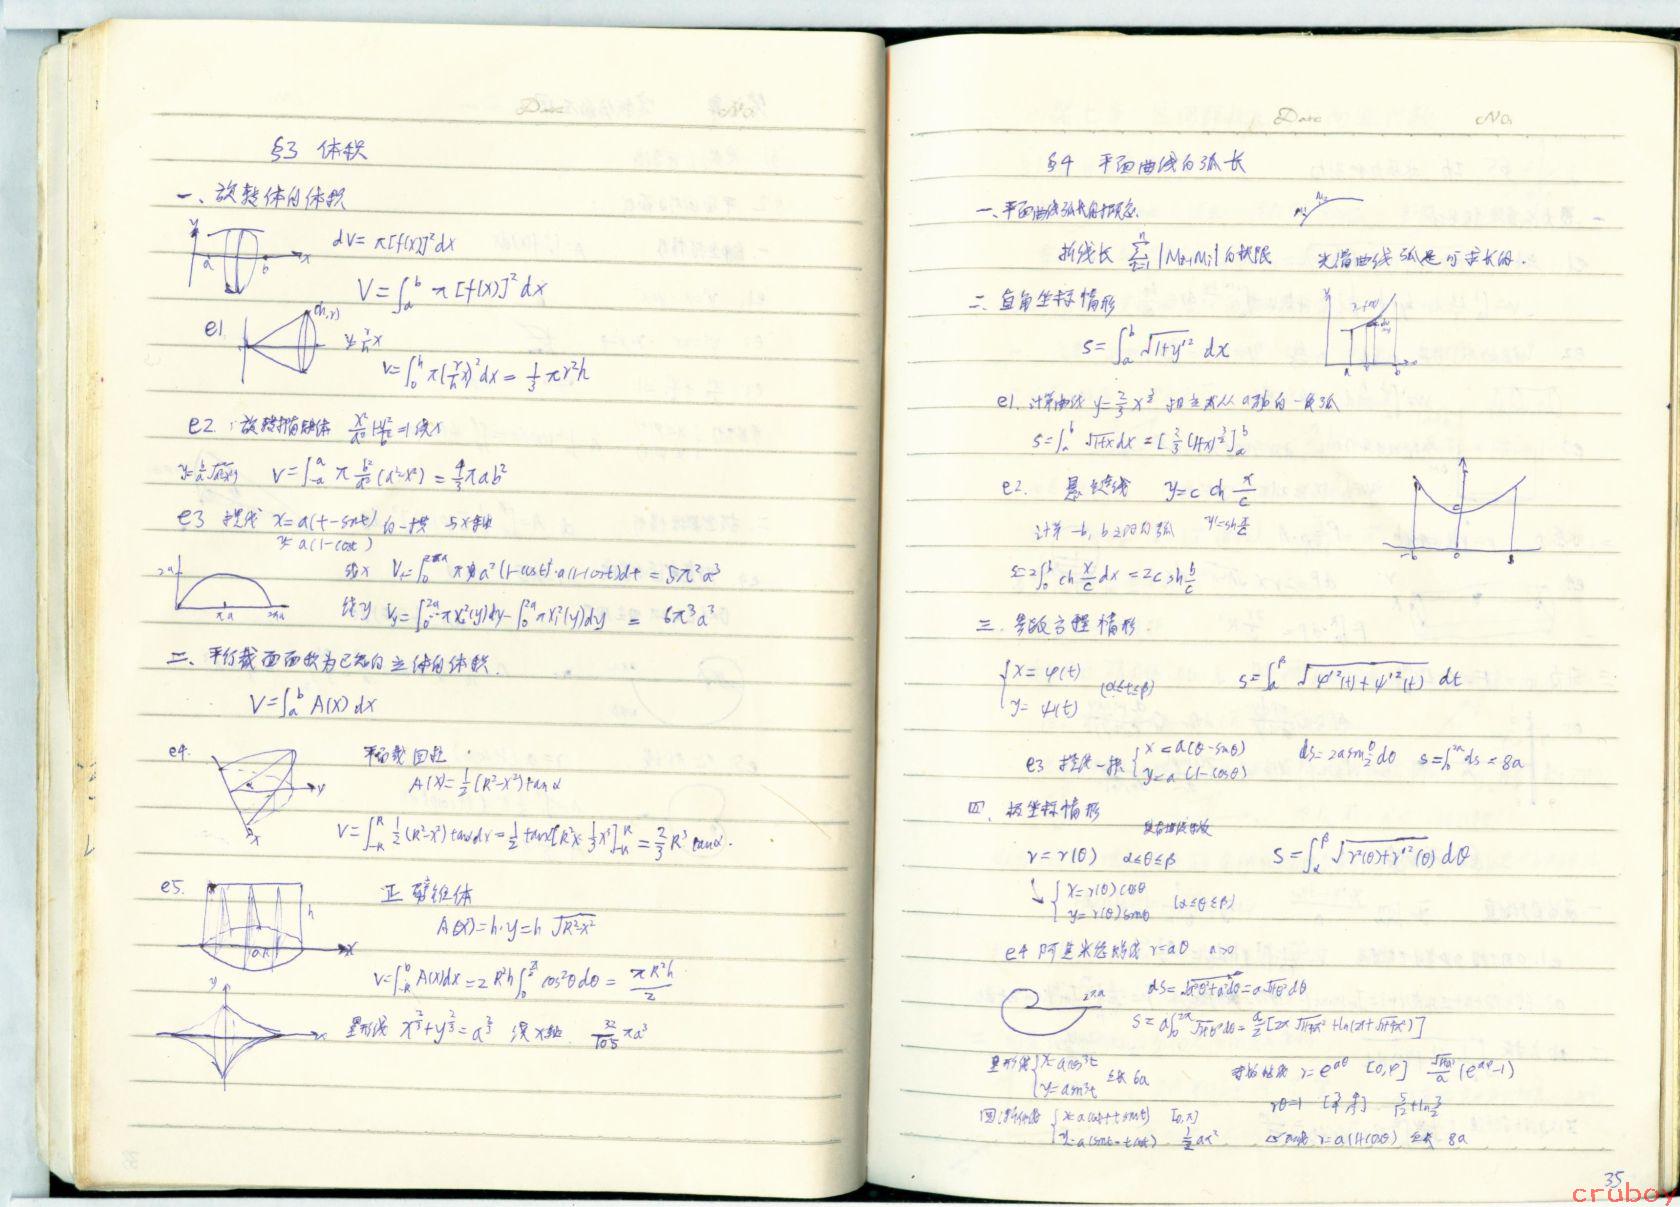 Date No.
§3 体积
一、旋转体的体积
y a b x
dV = π[f(x)]²dx
V = ∫_a^b π[f(x)]²dx
e1. (h,r) y=r/h x
V=∫_0^h π(r/h x)²dx = 1/3 πr²h
e2. 旋转椭球体 x²/a²+y²/b²=1 绕x
y=b/a √(a²-x²) V=∫_{-a}^a π b²/a² (a²-x²) = 4/3 πab²
e3 摆线 x=a(t-sint) 的一拱 与x轴
y=a(1-cost)
2a πa 2πa
绕x Vx=∫_0^{2πa} π a²(1-cost)²·a(1-cost)dt = 5π²a³
绕y Vy=∫_0^{2a} πx₂²(y)dy-∫_0^{2a} πx₁²(y)dy = 6π³a³
二、平行截面面积为已知的立体的体积.
V=∫_a^b A(x)dx
e4. 平面截圆柱
y x
A(x)=1/2 (R²-x²)tanα
V=∫_{-R}^R 1/2 (R²-x²)tanαdx=1/2 tanα[R²x-1/3 x³]_{-R}^R = 2/3 R³ tanα.
e5. 正劈锥体
h x
A(x)=h·y=h √(R²-x²)
V=∫_{-R}^R A(x)dx=2R²h∫_0^{π/2} cos²θdθ = πR²h/2
y x
星形线 x^{2/3}+y^{2/3}=a^{2/3} 绕x轴 32/105 πa³
Date No.
§4 平面曲线的弧长
一、平面曲线弧长的概念.
折线长 Σ_{i=1}^n |M_{i-1}M_i|的极限 光滑曲线弧是可求长的.
二、直角坐标情形
y a b
S=∫_a^b √(1+y'²) dx
e1. 计算曲线 y=2/3 x^{3/2} 相应于从a到b的一段弧
S=∫_a^b √(1+x)dx=[2/3 (1+x)^{3/2}]_a^b
e2. 悬链线 y=c ch x/c
c -b 0 b
计算-b, b之间的弧 y'=sh x/c
S=2∫_0^b ch x/c dx=2c sh b/c
三、参数方程情形.
{x=φ(t)
y=ψ(t) (α≤t≤β) S=∫_α^β √(φ'²(t)+ψ'²(t)) dt
e3 摆线一拱 {x=a(θ-sinθ)
y=a(1-cosθ) ds=2a sin θ/2 dθ S=∫_0^{2π} ds=8a
四、极坐标情形
r=r(θ) α≤θ≤β S=∫_α^β √(r²(θ)+r'²(θ)) dθ
↘ {x=r(θ)cosθ
y=r(θ)sinθ (α≤θ≤β)
e4 阿基米德螺线 r=aθ a>0
2πa
ds=√(a²θ²+a²)dθ=a√(1+θ²)dθ
S=a∫_0^{2π} √(1+θ²)dθ=a/2 [2π√(1+4π²)+ln(2π+√(1+4π²))]
星形线 {x=acos³t
y=asin³t 全长 6a 对数螺线 r=e^{aθ} [0,φ] √(1+a²)/a (e^{aφ}-1)
rθ=1 [3/4, 4/3] 5/12+ln 3/2
圆的渐伸线 {x=a(cost+tsint) [0,π]
y=a(sint-tcost) 1/2 aπ² 心形线 r=a(1+cosθ) 全长 8a
35
cruboy